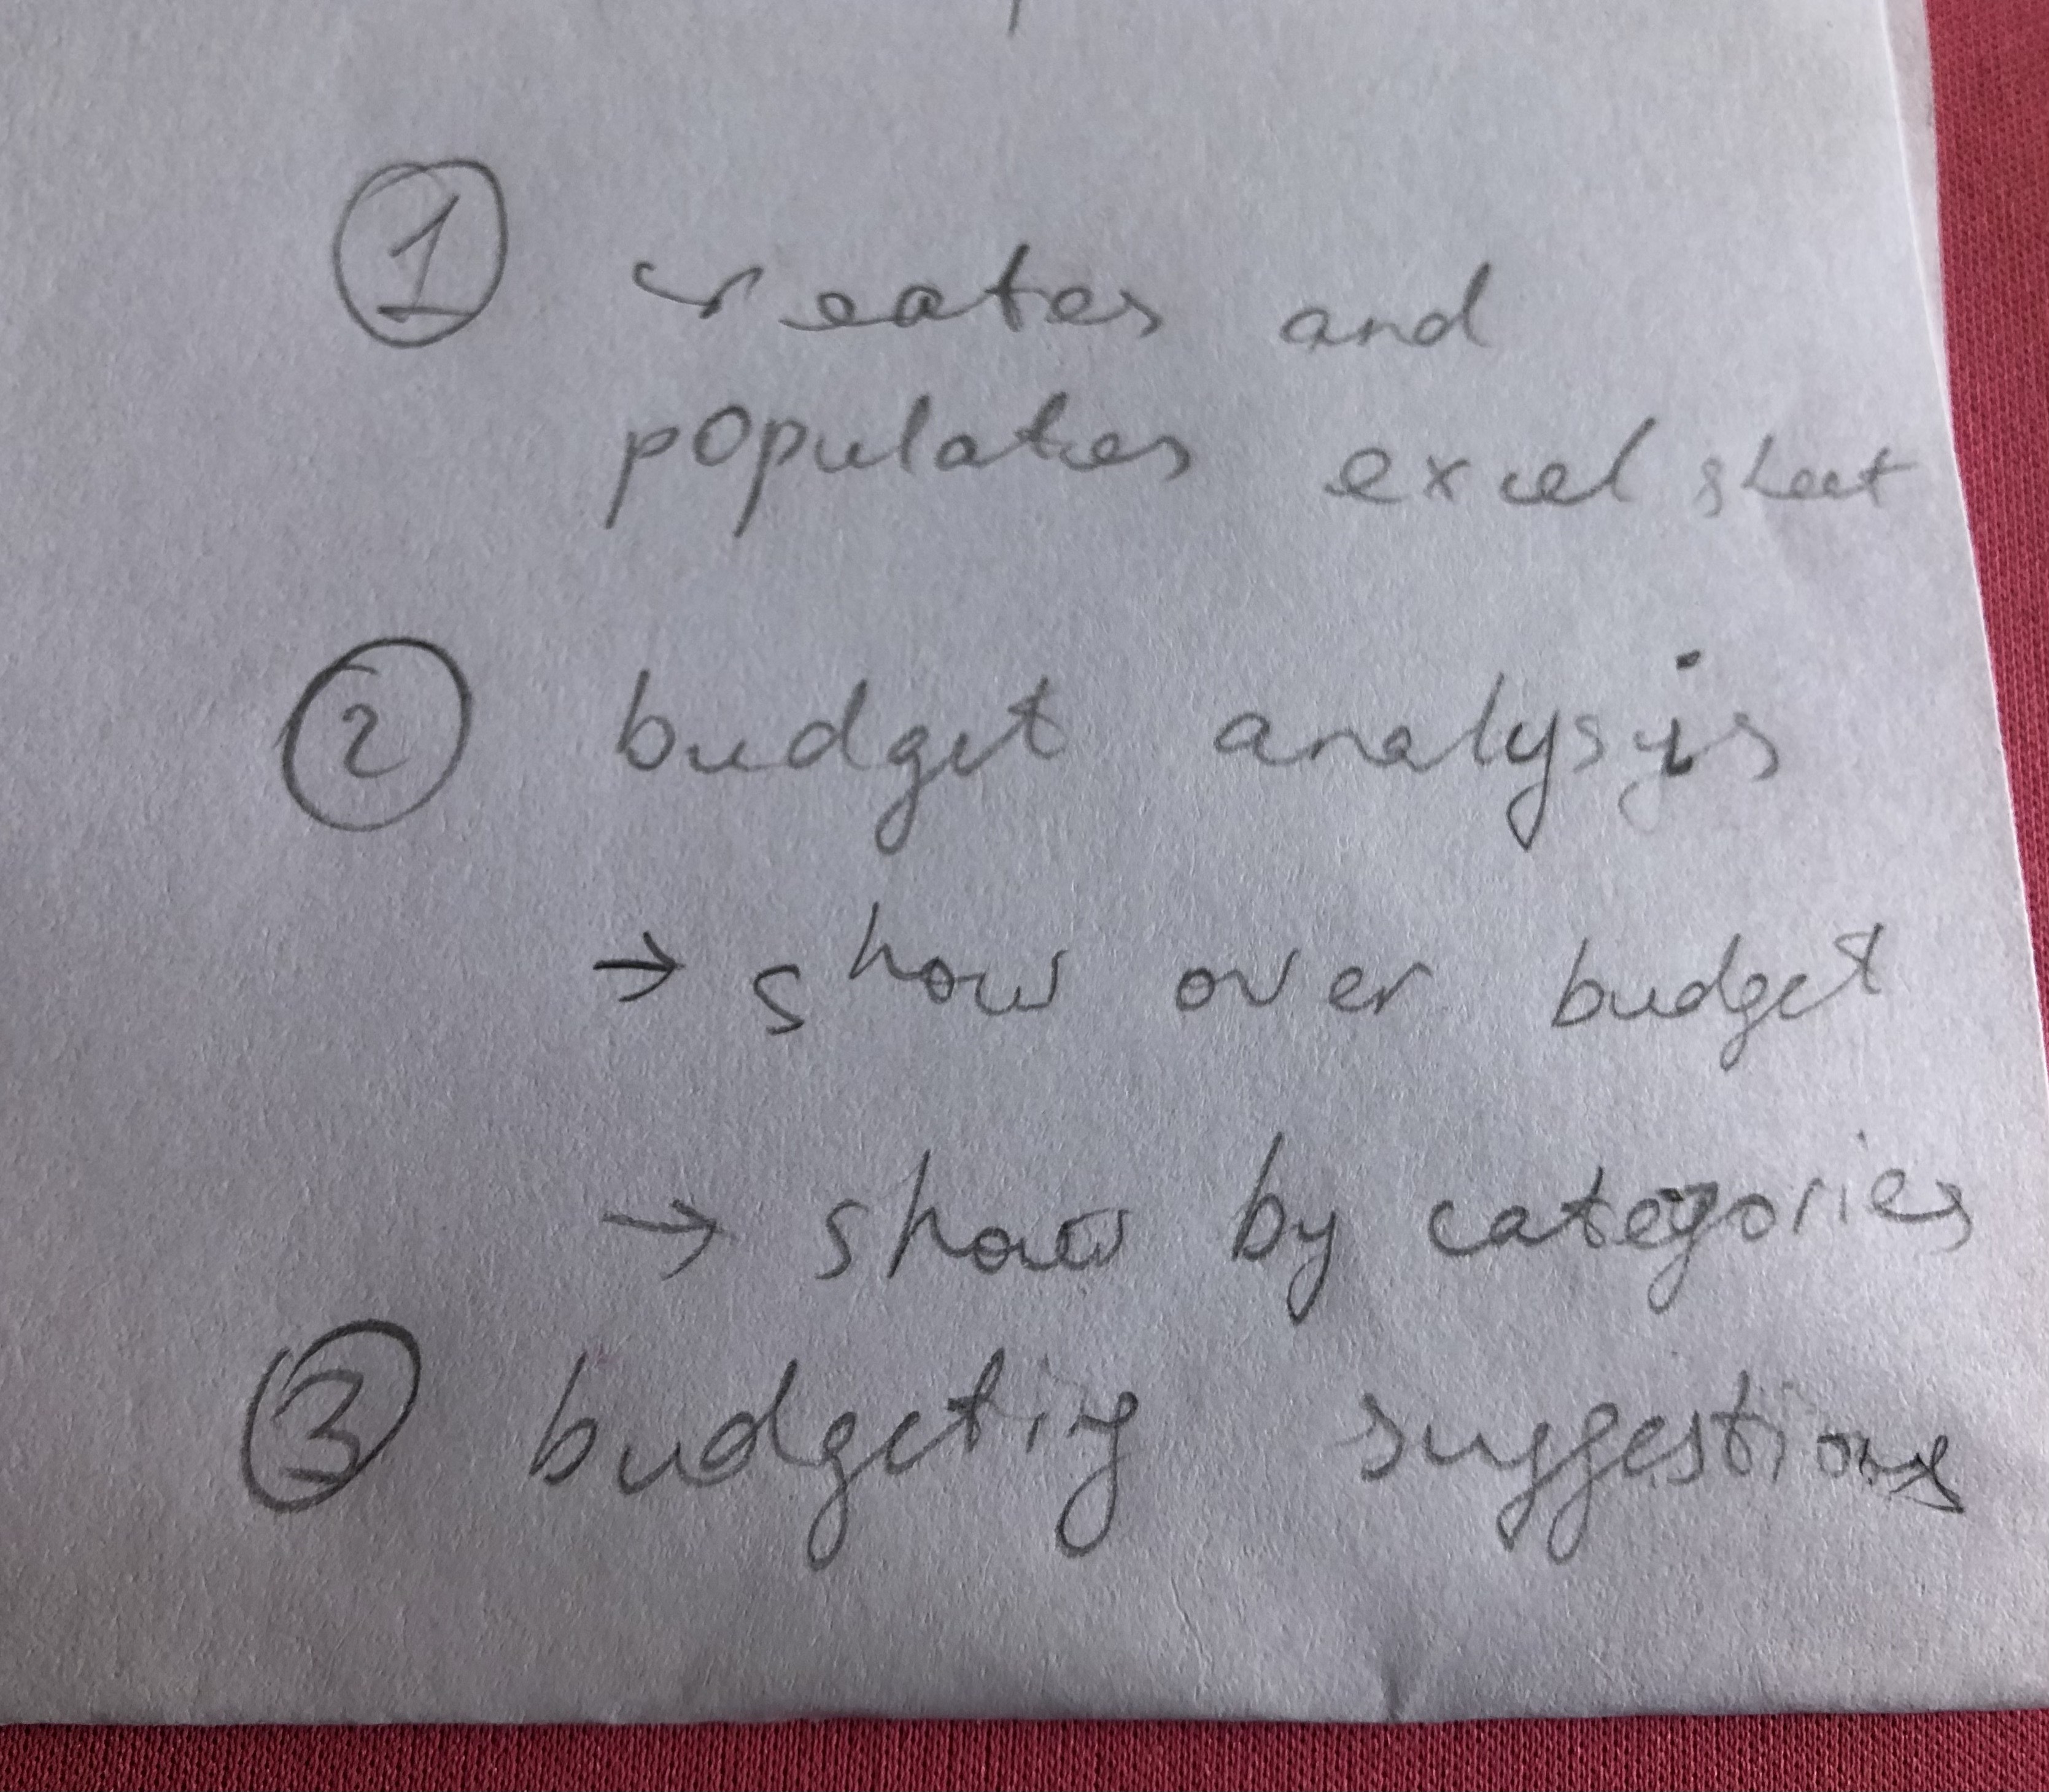 ① creates and
populates excel sheet
② budget analysis
→ show over budget
→ show by categories
③ budgeting suggestions